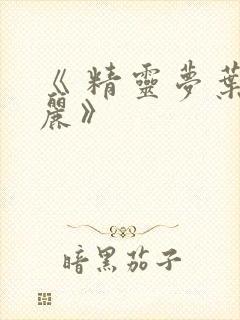 《精靈夢葉
麗》
暗黑茄子